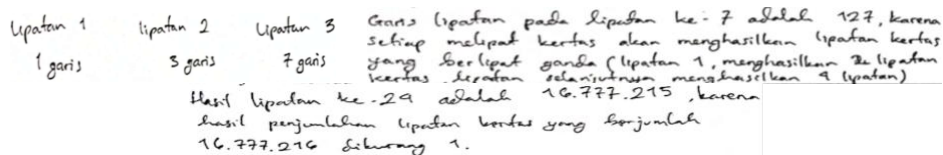 lipatan 1 lipatan 2 lipatan 3
1 garis 3 garis 7 garis
Garis lipatan pada lipatan ke-7 adalah 127, karena
setiap melipat kertas akan menghasilkan lipatan kertas
yang berlipat ganda (lipatan 1, menghasilkan 2 lipatan
kertas, lipatan selanjutnya menghasilkan 4 lipatan)
Hasil lipatan ke-24 adalah 16.777.215, karena
hasil penjumlahan lipatan kertas yang berjumlah
16.777.216 dikurang 1.